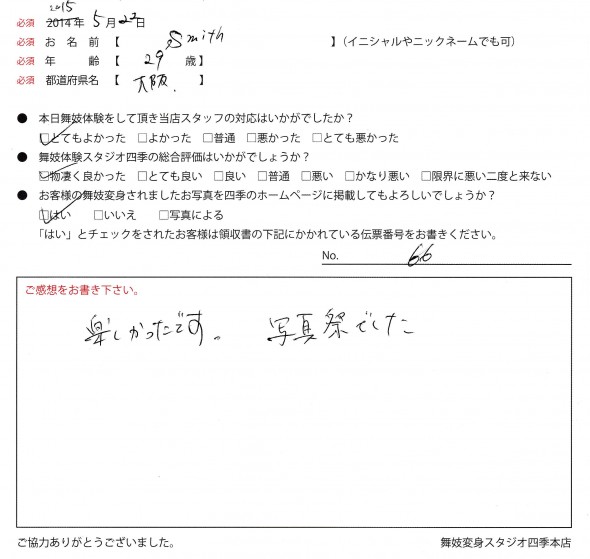 必須 2015 2014年 5月22日
必須 お名前【 Smith 】(イニシャルやニックネームでも可)
必須 年齢【 29 歳】
必須 都道府県名【 大阪. 】
● 本日舞妓体験をして頂き当店スタッフの対応はいかがでしたか?
□とてもよかった □よかった □普通 □悪かった □とても悪かった
● 舞妓体験スタジオ四季の総合評価はいかがでしょうか?
□物凄く良かった □とても良い □良い □普通 □悪い □かなり悪い □限界に悪い二度と来ない
● お客様の舞妓変身されましたお写真を四季のホームページに掲載してもよろしいでしょうか?
□はい □いいえ □写真による
「はい」とチェックをされたお客様は領収書の下記にかかれている伝票番号をお書きください。
No. 66
ご感想をお書き下さい。
楽しかったです。 写真祭でした
ご協力ありがとうございました。 舞妓変身スタジオ四季本店